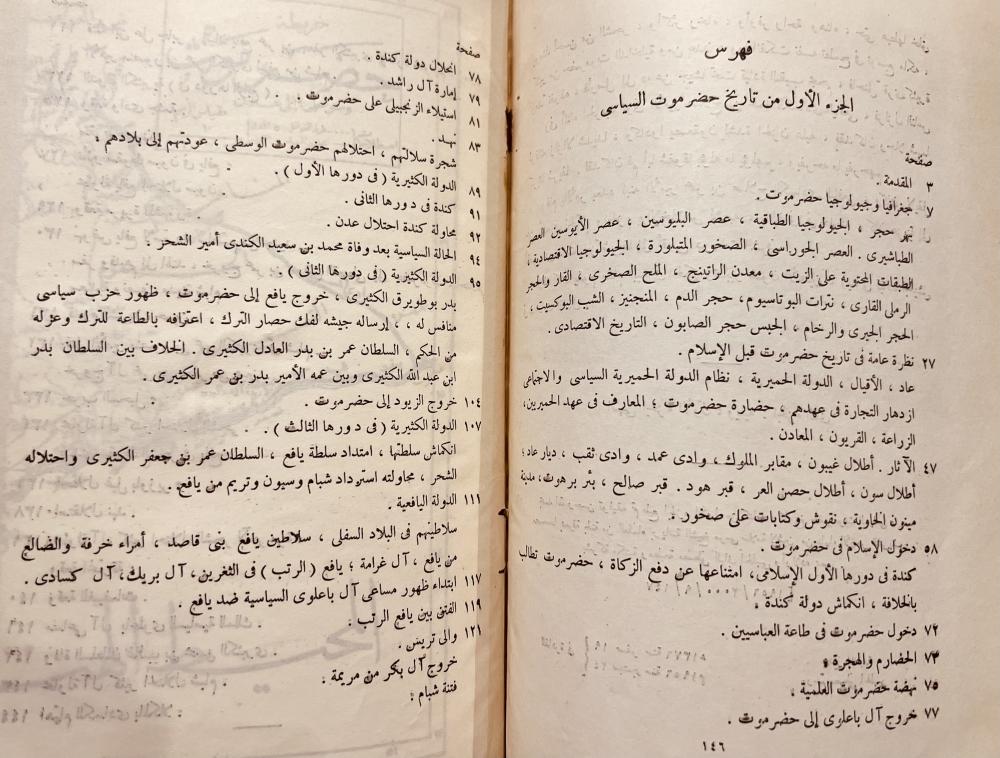 فهرس
الجزء الأول من تاريخ حضرموت السياسى
صفحة
٣ المقدمة .
٧ جغرافيا وجيولوجيا حضرموت .
نهر حجر ، الجيولوجيا الطباقية ، عصر البليوسين ، عصر الأيوسين العصر
الطباشيرى . العصر الجوراسى ، الصخور المتبلورة ، الجيولوجيا الاقتصادية ،
الطبقات المحتوية على الزيت ، معدن الراتينج ، الملح الصخرى ، القار والحجر
الرملى القارى ، نترات البوتاسيوم ، حجر الدم ، المنجنيز ، الشب البوكسيت ،
الحجر الجيرى والرخام ، الجبس حجر الصابون ، التاريخ الاقتصادى .
٢٧ نظرة عامة فى تاريخ حضرموت قبل الإسلام .
عاد ، الأقيال ، الدولة الحميرية ، نظام الدولة الحميرية السياسى والاجتماعى
ازدهار التجارة فى عهدهم ، حضارة حضرموت ؛ المعارف فى عهد الحميريين ،
الزراعة ، القريون ، المعادن .
٤٧ الآثار . أطلال غيبون ، مقابر الملوك ، وادى عمد ، وادى ثقب ، ديار عاد ؛
أطلال سون ، أطلال حصن العر ، قبر هود . قبر صالح ، بئر برهوت، مدينة
مينون الحاوية ، نقوش وكتابات على صخور .
٥٨ دخول الإسلام فى حضرموت .
كندة فى دورها الأول الإسلامى ، امتناعها عن دفع الزكاة ، حضرموت تطالب
بالخلافة ، انكماش دولة كندة .
٧٢ دخول حضرموت فى طاعة العباسيين .
٧٣ الحضارم والهجرة .
٧٥ نهضة حضرموت العلمية .
٧٧ خروج آل باعلوى إلى حضرموت .
١٤٦
صفحة
٧٨ انحلال دولة كندة .
٧٩ إمارة آل راشد .
٨١ استيلاء الزنجبيلى على حضرموت .
٨٣ نهد .
شجرة سلالتهم ، احتلالهم حضرموت الوسطى ، عودتهم إلى بلادهم .
٨٩ الدولة الكثيرية ( فى دورها الأول ) .
٩١ كندة فى دورها الثانى .
٩٢ محاولة كندة احتلال عدن .
٩٤ الحالة السياسية بعد وفاة محمد بن سعيد الكندى أمير الشحر .
٩٥ الدولة الكثيرية ( فى دورها الثانى ) .
بدر بوطويرق الكثيرى ، خروج يافع إلى حضرموت ، ظهور حزب سياسى
منافس له ، ، إرساله جيشه لفك حصار الترك ، اعترافه بالطاعة للترك وعزله
من الحكم ، السلطان عمر بن بدر العادل الكثيرى . الخلاف بين السلطان بدر
ابن عبد الله الكثيرى وبين عمه الأمير بدر بن عمر الكثيرى .
١٠٤ خروج الزيود إلى حضرموت .
١٠٧ الدولة الكثيرية ( فى دورها الثالث ) .
انكماش سلطتها ، امتداد سلطة يافع ، السلطان عمر بن جعفر الكثيرى واحتلاله
الشحر ، محاولته استرداد شبام وسيون وتريم من يافع .
١١١ الدولة اليافعية .
سلاطينهم فى البلاد السفلى ، سلاطين يافع بنى قاصد ، أمراء خرفة والضالع
من يافع ، آل غرامة ؛ يافع ( الرتب ) فى الثغرين ، آل بريك، آل كسادى .
١١٧ ابتداء ظهور مساعى آل باعلوى السياسية ضد يافع .
١١٩ الفتن بين يافع الرتب .
١٢١ والى تريس .
خروج آل بكر من مريمة .
فتنة شبام .